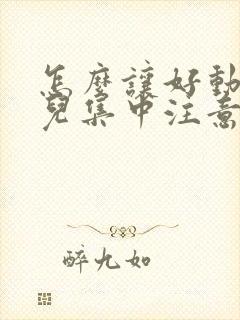 怎麼讓好動
兒集中注意
醉九如